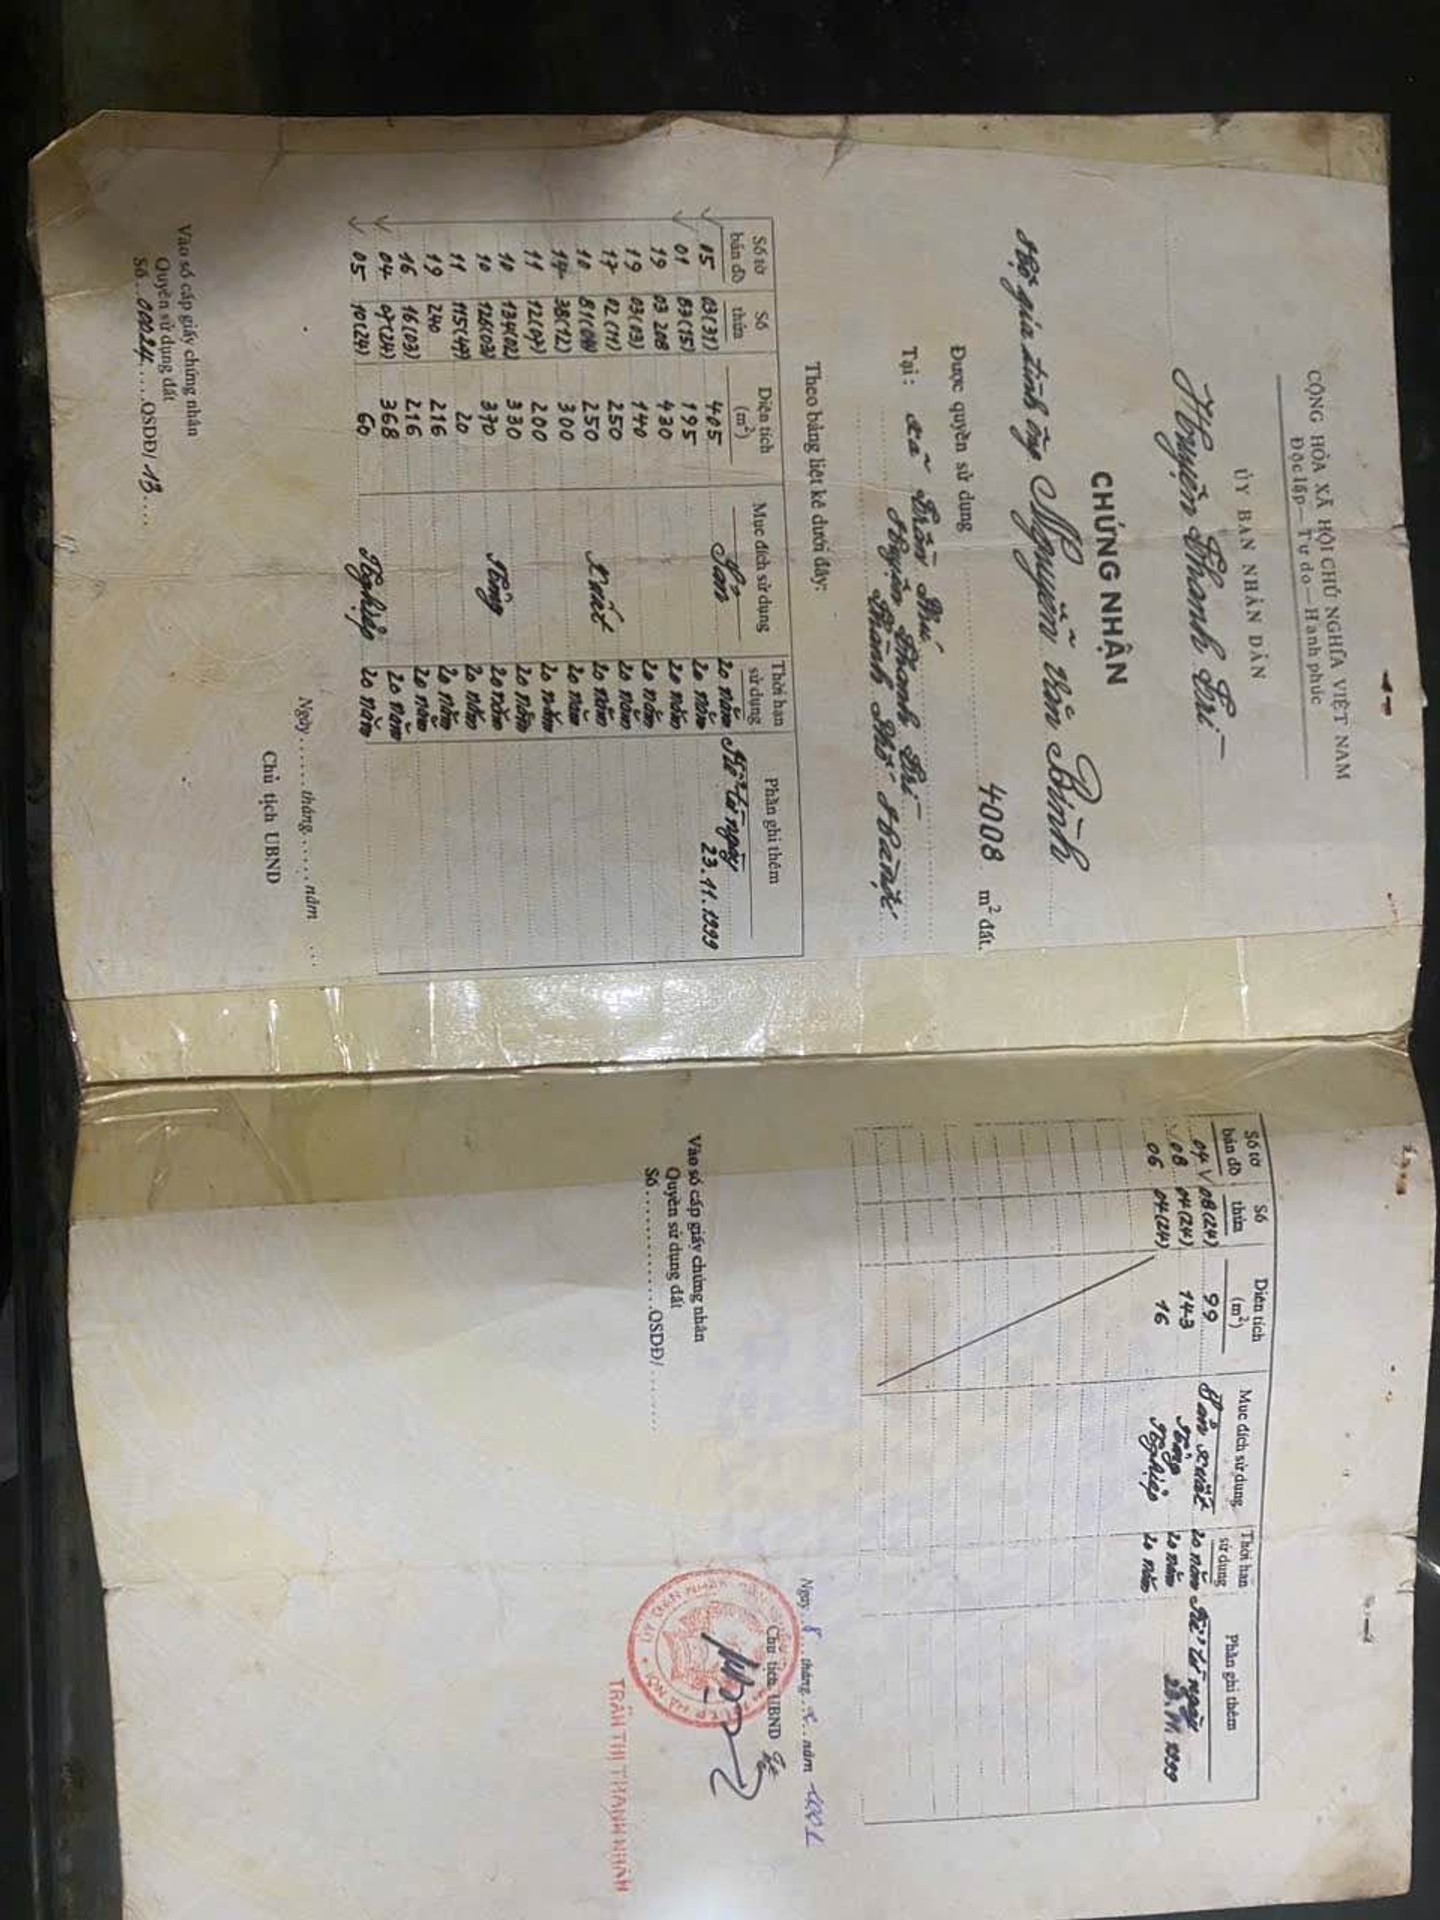 CỘNG HÒA XÃ HỘI CHỦ NGHĨA VIỆT NAM
Độc lập — Tự do — Hạnh phúc
ỦY BAN NHÂN DÂN
Huyện Thanh Trì
CHỨNG NHẬN
Hộ gia đình ông Nguyễn Văn Bình
Được quyền sử dụng 4008 m² đất.
Tại: xã Trần Phú
Huyện Thanh Trì
Thành Phố Hà Nội
Theo bảng liệt kê dưới đây:
Số tờ bản đồ Số thửa Diện tích (m²) Mục đích sử dụng Thời hạn sử dụng Phần ghi thêm
05 03(31) 405 Sản 20 năm Kể từ ngày
01 83(15) 195 20 năm 23.11.1999
19 03 208 430 20 năm
19 03(03) 140 20 năm
17 02(11) 250 20 năm
10 250 Xuất 20 năm
14 38(12) 300 20 năm
11 12(07) 200 20 năm
10 134(02) 330 20 năm
10 126(03) 370 Nông 20 năm
11 115(47) 20 20 năm
19 240 216 20 năm
16 16(03) 216 20 năm
04 07(24) 368 20 năm
05 10(24) 60 Nghiệp 20 năm
Ngày......tháng......năm
Chủ tịch UBND
Vào sổ cấp giấy chứng nhận
Quyền sử dụng đất
Số...00024....QSDĐ/13....
Số tờ bản đồ Số thửa Diện tích (m²) Mục đích sử dụng Thời hạn sử dụng Phần ghi thêm
04 08(24) 99 Sản xuất 20 năm Kể từ ngày
08 04(24) 143 Nông 20 năm 23.11.1999
06 04(24) 16 Nghiệp 20 năm
Ngày 8 tháng năm
Chủ tịch UBND
Vào sổ cấp giấy chứng nhận
Quyền sử dụng đất
Số..........QSDĐ/.......
TRẦN THỊ THANH NHÀN